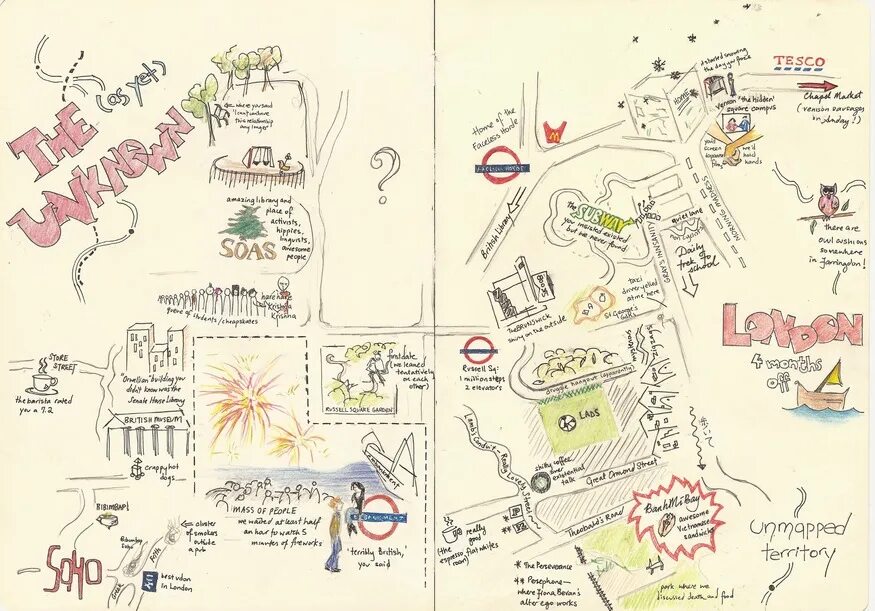 THE
(as yet)
UNKNOWN
where you said
"I can't endure
this relationship
any longer"
amazing library and
place of
activists,
hippies,
linguists,
awesome
people
SOAS
hare hare
Krishna
Krishna
queue of students/cheapskates
?
STORE
STREET
the barista rated
you a 7.2
"Orwellian" building you
didn't know was the
Senate House Library
BRITISH MUSEUM
crappy hot
dogs
first date
(we leaned
tentatively
on each
other)
RUSSELL SQUARE GARDEN
Monument
MASS OF PEOPLE
we waited at least half
an hour to watch 5
minutes of fireworks
EMBANKMENT
'terribly British,'
you said
BIBIMBAP!
cluster
of smokers
outside
a pub
Frith
Greek
SOHO
best udon
in London
Home of the
Faceless Horde
FACELESS HORDE
British Library
HOME
it started snowing
the day you left
TESCO
Chapel Market
(venison sausages
on Sunday!)
Vernon 'the hidden'
square campus
your screen
we'd
hold
hands
The SUBWAY
you insisted existed
but we never found
GRAY'S INN SANITY
quiet lane
Daily
trek to
school
MORNING MADNESS
there are
owl cushions
somewhere
in Farringdon!
BOOKS
The BRUNSWICK
skiing on the outside
taxi
driver yelled
at me here
St George's
Gdns
Russell Sq:
1 million steps
2 elevators
struggle hangout (apparently)
zigzags
windows
LADS
LONDON
4 months
off
Lamb's Conduit - Really
Lovely Street
shitty coffee
over
existential
talk
Great Ormond Street
Theobald's Road
BanhMiBay
awesome
Vietnamese
sandwich
really
good
flat whites
(the
espresso
room)
* The Perseverance
** Persephone—
where Fiona Bevan's
alter ego works
park where we
discussed death and food
Unmapped
territory